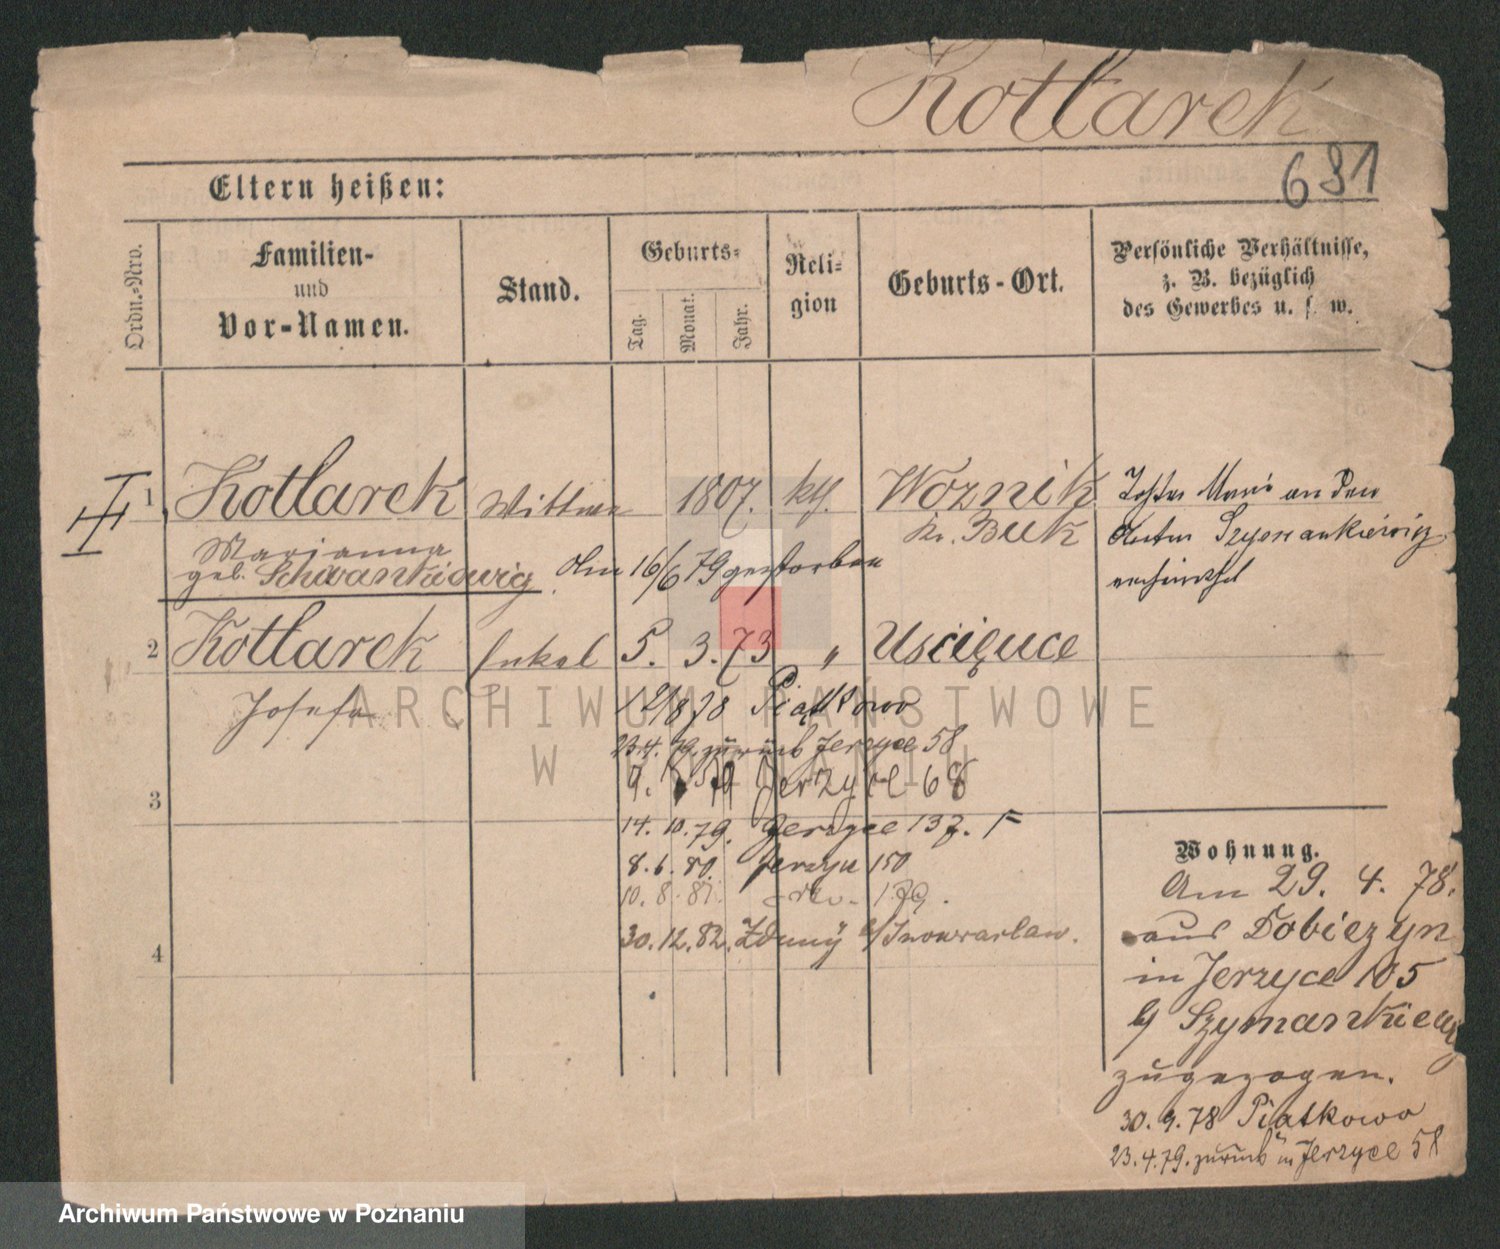 Kotlarek
681
Eltern heißen:
Ordn.-Nro.
Familien-
und
Vor-Namen.
Stand.
Geburts-
Tag.
Monat.
Jahr.
Reli-
gion
Geburts-Ort.
Persönliche Verhältnisse,
z. B. bezüglich
des Gewerbes u. s. w.
1 Kotlarek Wittwe 1807. kth. Woznik
Kr. Buk
Marianna
geb. Schwankiewig am 16/6 79 gestorben
Tochter Marie an den
Szymankiewig
verheirathet
2 Kotlarek Enkel 5. 3. 73 " Uscięuce
Josefa
12/8 78 Piatkowo
23.4. 79. zurück Jerzyce 58
3
9. 79 Jerzyce 68
14. 10. 79. Jerzyce 137. F
8. 6. 80. Jerzyce 150
10. 8. 81. 179.
4
30. 12. 82. Zduny b/ Inowraclaw.
Wohnung.
Am 29. 4. 78.
aus Dobiezyn
in Jerzyce 105
b/ Szymankiewig
zugezogen.
30. 9. 78 Piatkowo
23. 4. 79. zurück in Jerzyce 58
ARCHIWUM PAŃSTWOWE
W POZNANIU
Archiwum Państwowe w Poznaniu